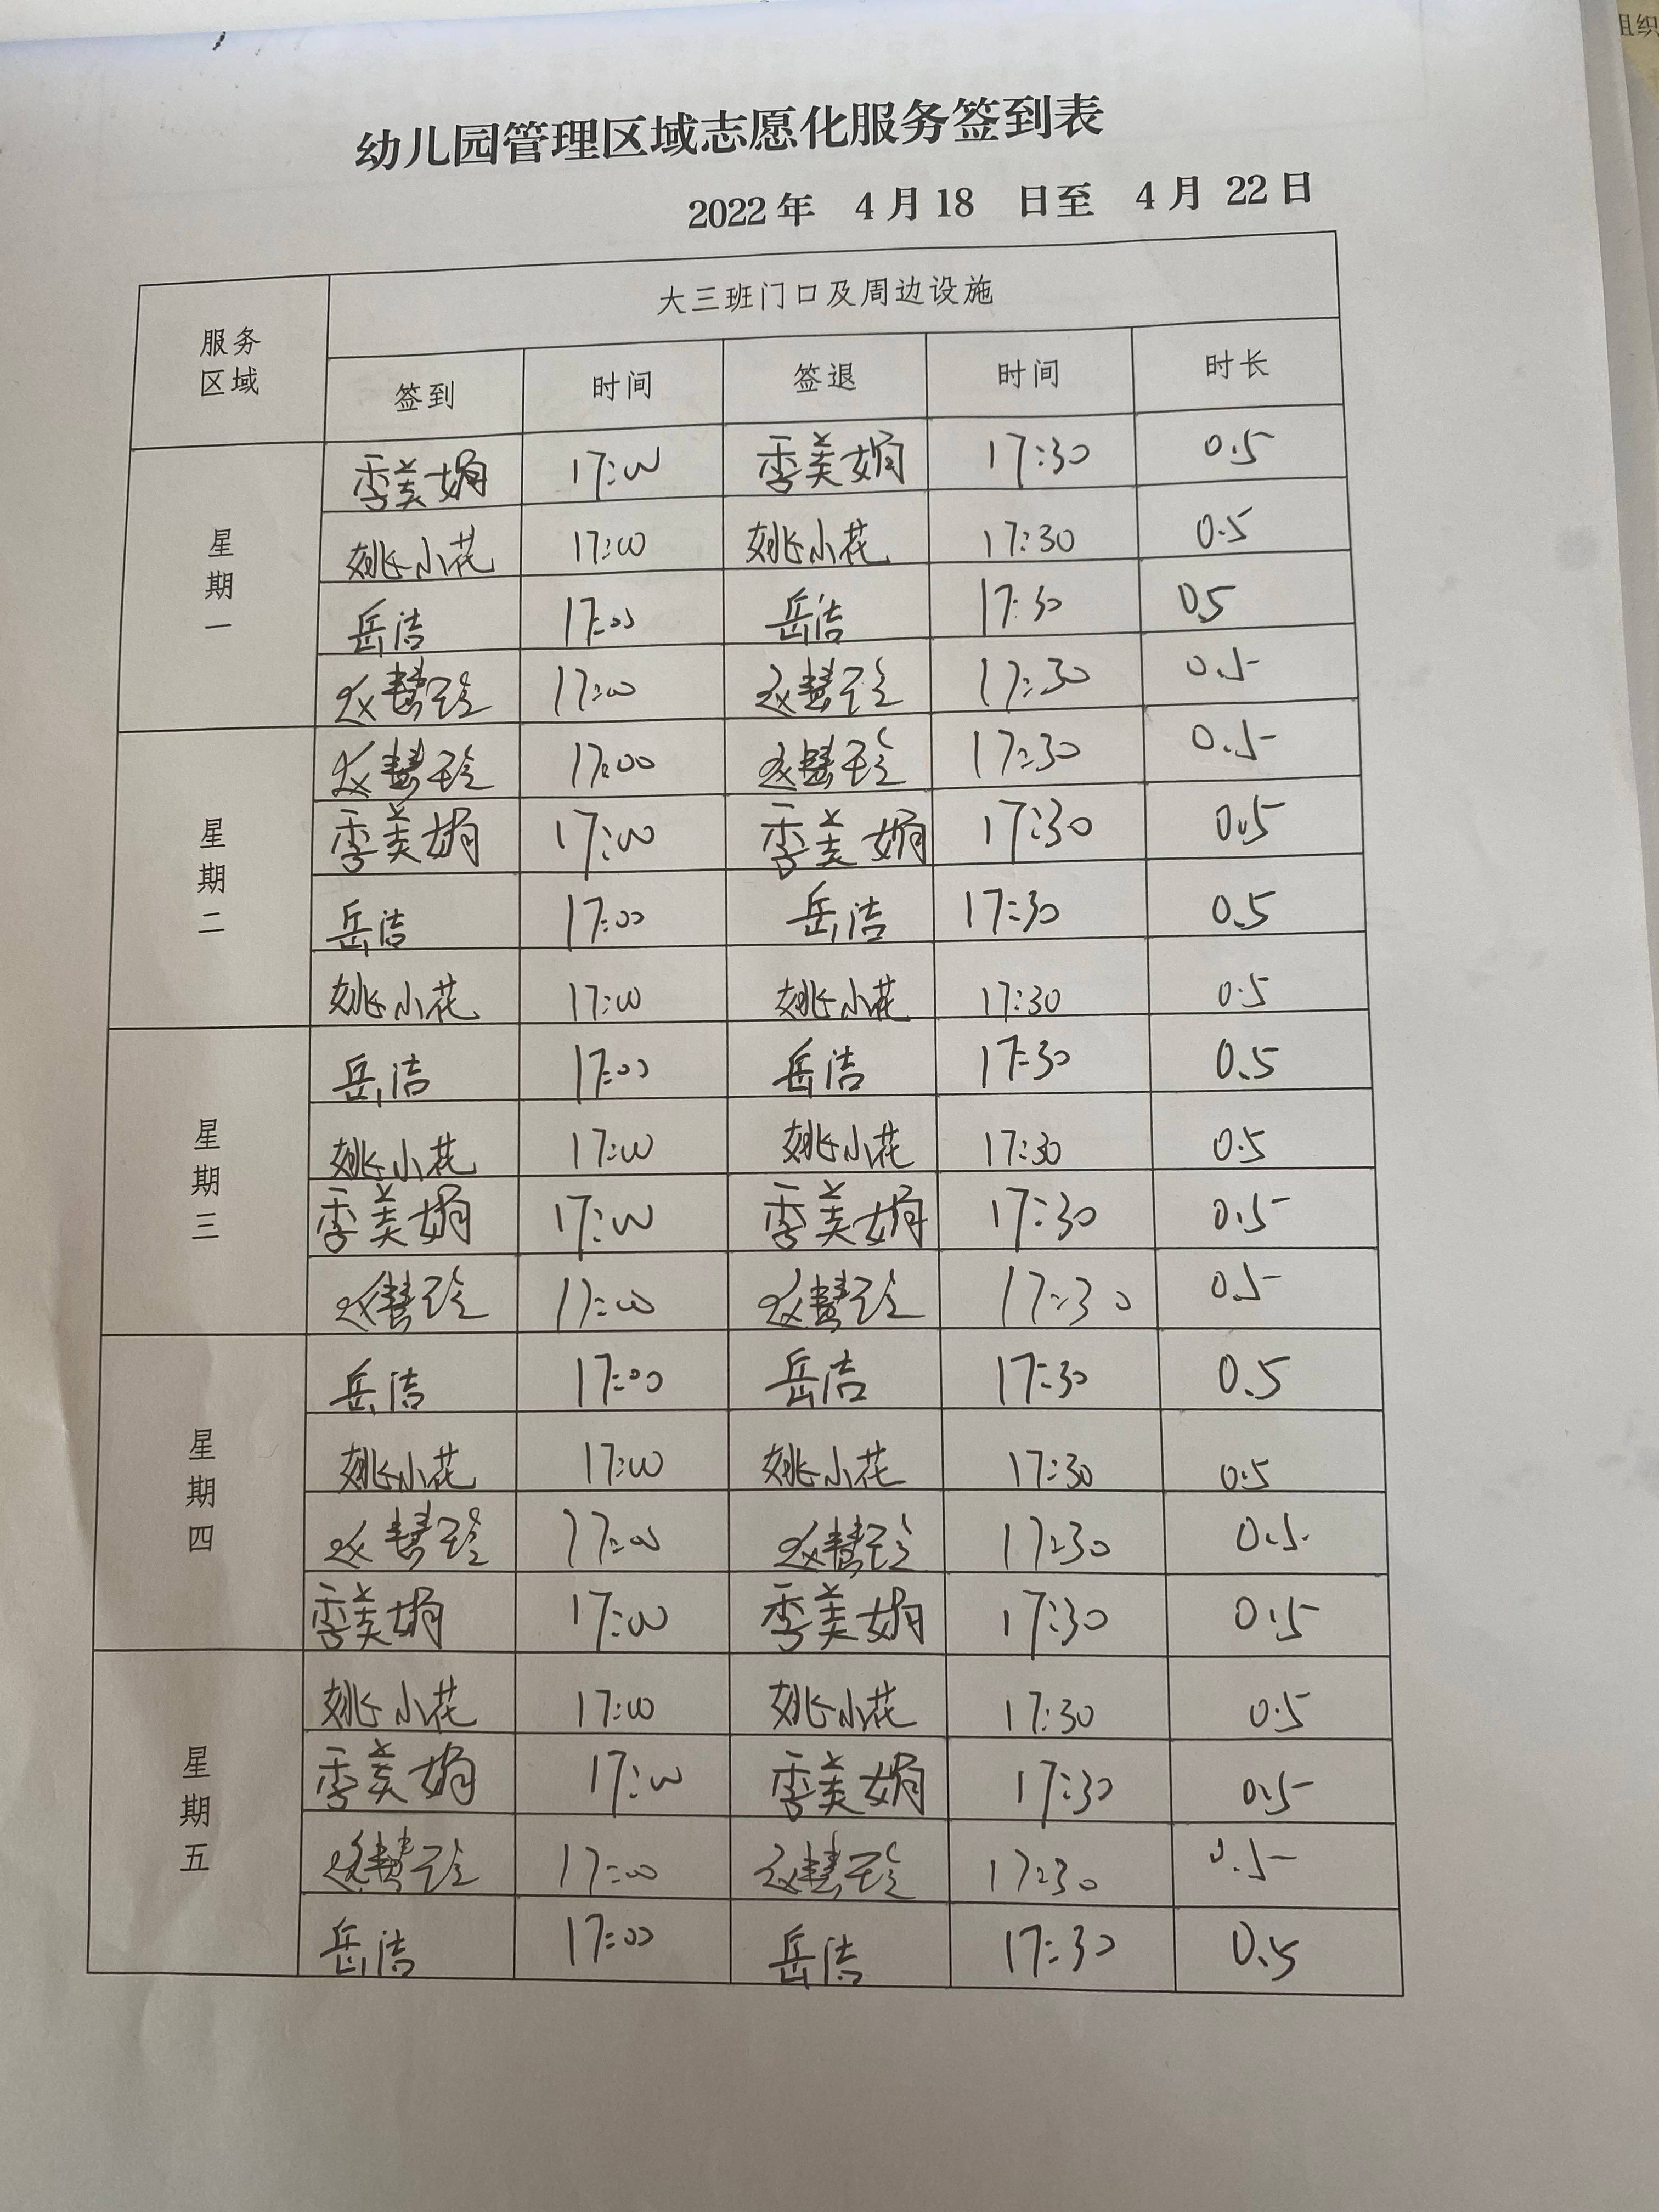 组织
幼儿园管理区域志愿化服务签到表
2022年 4月18 日至 4月 22日
服务区域 大三班门口及周边设施
签到 时间 签退 时间 时长
星期一
季美娟 17:00 季美娟 17:30 0.5
姚小花 17:00 姚小花 17:30 0.5
岳洁 17:00 岳洁 17:30 0.5
赵慧玲 17:00 赵慧玲 17:30 0.5
星期二
赵慧玲 17:00 赵慧玲 17:30 0.5
季美娟 17:00 季美娟 17:30 0.5
岳洁 17:00 岳洁 17:30 0.5
姚小花 17:00 姚小花 17:30 0.5
星期三
岳洁 17:00 岳洁 17:30 0.5
姚小花 17:00 姚小花 17:30 0.5
季美娟 17:00 季美娟 17:30 0.5
赵慧玲 17:00 赵慧玲 17:30 0.5
星期四
岳洁 17:00 岳洁 17:30 0.5
姚小花 17:00 姚小花 17:30 0.5
赵慧玲 17:00 赵慧玲 17:30 0.5
季美娟 17:00 季美娟 17:30 0.5
星期五
姚小花 17:00 姚小花 17:30 0.5
季美娟 17:00 季美娟 17:30 0.5
赵慧玲 17:00 赵慧玲 17:30 0.5
岳洁 17:00 岳洁 17:30 0.5